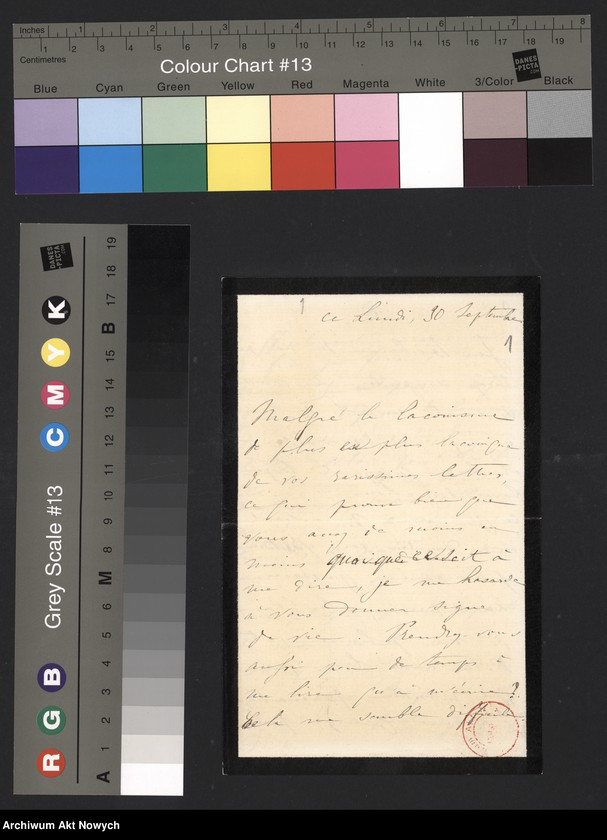 Inches 1 2 3 4 5 6 7 8
Centimetres 1 2 3 4 5 6 7 8 9 10 11 12 13 14 15 16 17 18 19
Colour Chart #13
DANES
-PICTA
.COM
Blue Cyan Green Yellow Red Magenta White 3/Color Black
Grey Scale #13
DANES
-PICTA
.COM
R G B C M Y K
A 1 2 3 4 5 6 M 8 9 10 11 12 13 14 15 B 17 18 19
1
ce Lundi, 30 Septembre
1
Malgré le laconisme
de plus en plus laconique
de vos rarissimes lettres,
ce qui prouve bien que
vous avez de moins en
moins quoique ce soit à
me dire, je me hasarde
à vous donner signe
de vie. Prendrez-vous
aussi peu de temps à
me lire qu'à m'écrire?
Cela me semble difficile.
Archiwum Akt Nowych